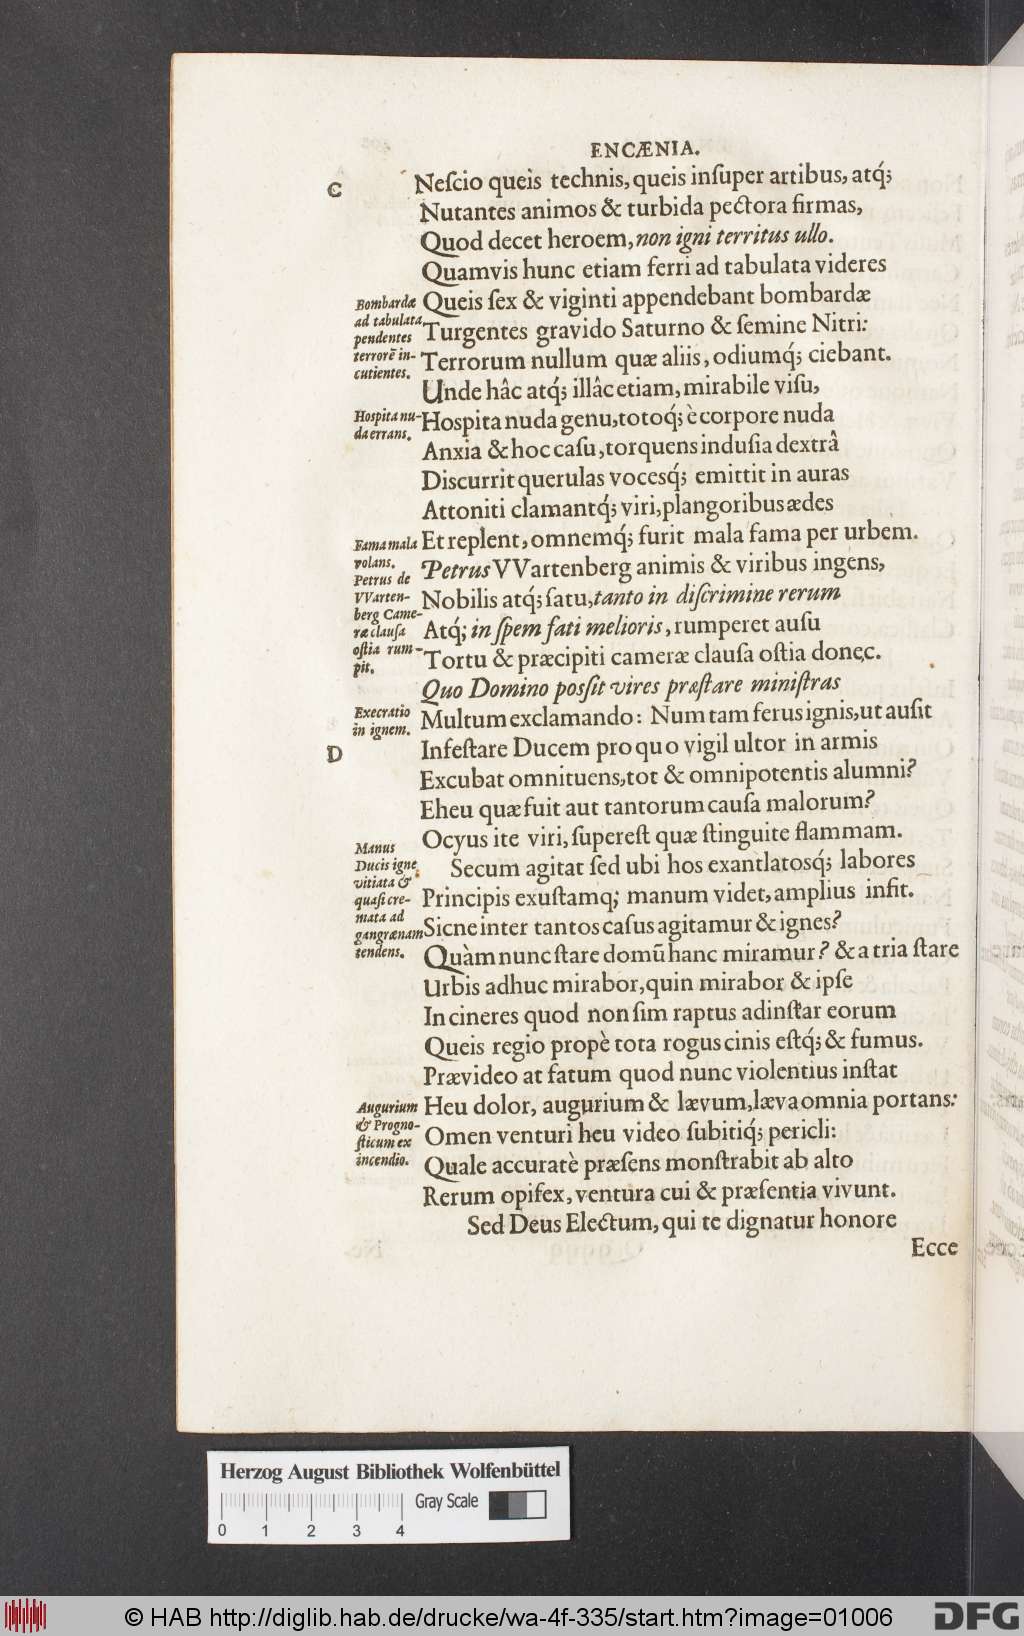 ENCÆNIA.
C
Neſcio queis technis, queis inſuper artibus, atq́;
Nutantes animos & turbida pectora firmas,
Quod decet heroem, non igni territus ullo.
Quamvis hunc etiam ferri ad tabulata videres
Bombardæ
ad tabulata
pendentes
terrorē in-
cutientes.
Queis ſex & viginti appendebant bombardæ
Turgentes gravido Saturno & ſemine Nitri:
Terrorum nullum quæ aliis, odiumq́; ciebant.
Unde hâc atq́; illâc etiam, mirabile viſu,
Hospita nu-
da errans.
Hoſpita nuda genu, totoq́; è corpore nuda
Anxia & hoc caſu, torquens induſia dextrâ
Diſcurrit querulas vocesq́; emittit in auras
Attoniti clamantq́; viri, plangoribus ædes
Fama mala
volans.
Et replent, omnemq́; furit mala fama per urbem.
Petrus de
VVarten-
berg Came-
ræ clauſa
oſtia rum-
pit.
Petrus VVartenberg animis & viribus ingens,
Nobilis atq́; ſatu, tanto in diſcrimine rerum
Atq́; in ſpem fati melioris, rumperet auſu
Tortu & præcipiti cameræ clauſa oſtia donec.
Quo Domino poſſit vires præſtare miniſtras
Execratio
in ignem.
Multum exclamando: Num tam ferus ignis, ut auſit
D
Infeſtare Ducem pro quo vigil ultor in armis
Excubat omnituens, tot & omnipotentis alumni?
Eheu quæ fuit aut tantorum cauſa malorum?
Ocyus ite viri, ſupereſt quæ ſtinguite flammam.
Manus
Ducis igne
vitiata &
quaſi cre-
mata ad
gangrænam
tendens.
Secum agitat ſed ubi hos exantlatosq́; labores
Principis exuſtamq; manum videt, amplius infit.
Sicne inter tantos caſus agitamur & ignes?
Quàm nunc ſtare domū hanc miramur? & atria ſtare
Urbis adhuc mirabor, quin mirabor & ipſe
In cineres quod non ſim raptus ad inſtar eorum
Queis regio propè tota rogus cinis eſtq́; & fumus.
Prævideo at fatum quod nunc violentius inſtat
Augurium
& Progno-
ſticum ex
incendio.
Heu dolor, augurium & lævum, læva omnia portans:
Omen venturi heu video ſubitiq́; pericli:
Quale accuratè præſens monſtrabit ab alto
Rerum opifex, ventura cui & præſentia vivunt.
Sed Deus Electum, qui te dignatur honore
Ecce
Herzog August Bibliothek Wolfenbüttel
Gray Scale
0 1 2 3 4
© HAB http://diglib.hab.de/drucke/wa-4f-335/start.htm?image=01006
DFG